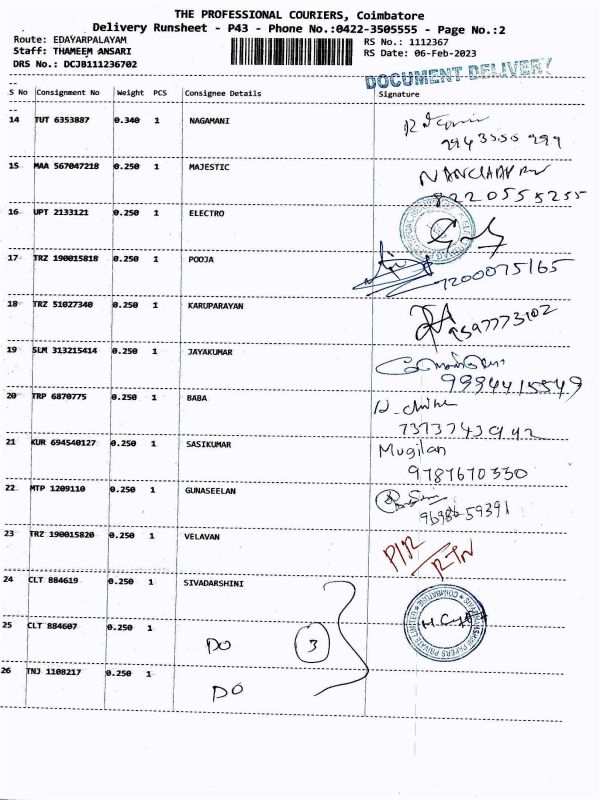 THE PROFESSIONAL COURIERS, Coimbatore
Delivery Runsheet - P43 - Phone No.:0422-3505555 - Page No.:2
Route: EDAYARPALAYAM RS No.: 1112367
Staff: THAMEEM ANSARI RS Date: 06-Feb-2023
DRS No.: DCJB111236702
DOCUMENT DELIVERY
S No Consignment No Weight PCS Consignee Details Signature
14 TUT 6353887 0.340 1 NAGAMANI
15 MAA 567047218 0.250 1 MAJESTIC
8220555255
16 UPT 2133121 0.250 1 ELECTRO
17 TRZ 190015818 0.250 1 POOJA
7200075165
18 TRZ 51027340 0.250 1 KARUPARAYAN
9597773102
19 SLM 313215414 0.250 1 JAYAKUMAR
9994415549
20 TRP 6870775 0.250 1 BABA
7373743942
21 KUR 694540127 0.250 1 SASIKUMAR Mugilan
9787670330
22 MTP 1209110 0.250 1 GUNASEELAN
96986 59391
23 TRZ 190015820 0.250 1 VELAVAN
RTN
24 CLT 884619 0.250 1 SIVADARSHINI
25 CLT 884607 0.250 1
DO 3
26 TNJ 1108217 0.250 1
DO